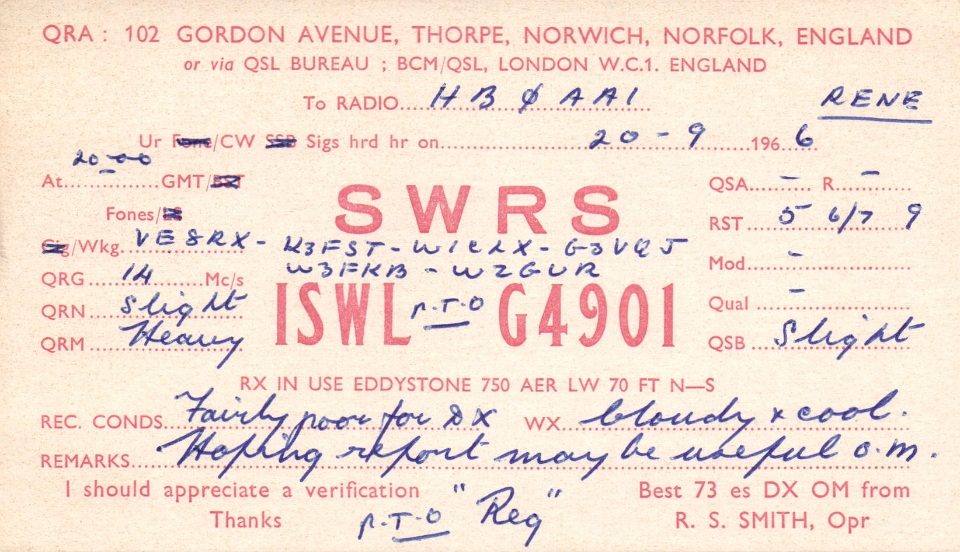 QRA : 102 GORDON AVENUE, THORPE, NORWICH, NORFOLK, ENGLAND
or via QSL BUREAU ; BCM/QSL, LONDON W.C.1. ENGLAND
To RADIO....HBØAA1 RENE
Ur Fone/CW SSB Sigs hrd hr on....20-9....1966.
At....20-00....GMT/BST
SWRS
QSA....-....R....-....
Fones/LS
RST....5 6/7 9
Sig/Wkg. VE8RX - K3FST - W1CLX - G3VQJ
W3FKB - W2GUR
Mod....-....
QRG....14....Mc/s
ISWL P.T.O G4901
Qual....-....
QRN....Slight
QRM....Heavy
QSB....Slight
RX IN USE EDDYSTONE 750 AER LW 70 FT N—S
REC. CONDS....Fairly poor for DX WX....Cloudy & cool.
REMARKS....Hoping report may be useful o.m.
I should appreciate a verification
Thanks
P.T.O "Reg"
Best 73 es DX OM from
R. S. SMITH, Opr